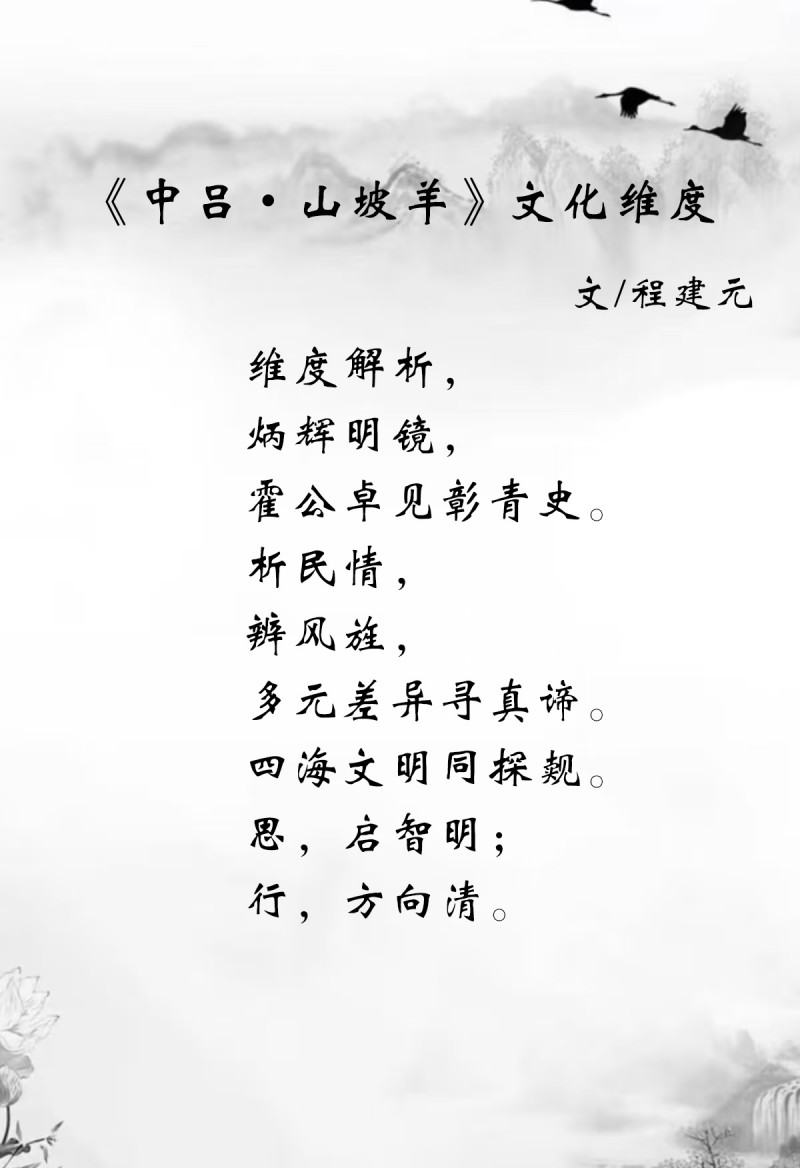 《中吕·山坡羊》文化维度
文/程建元
维度解析，
炳辉明镜，
霍公卓见彰青史。
析民情，
辨风旌，
多元差异寻真谛。
四海文明同探觌。
思，启智明；
行，方向清。